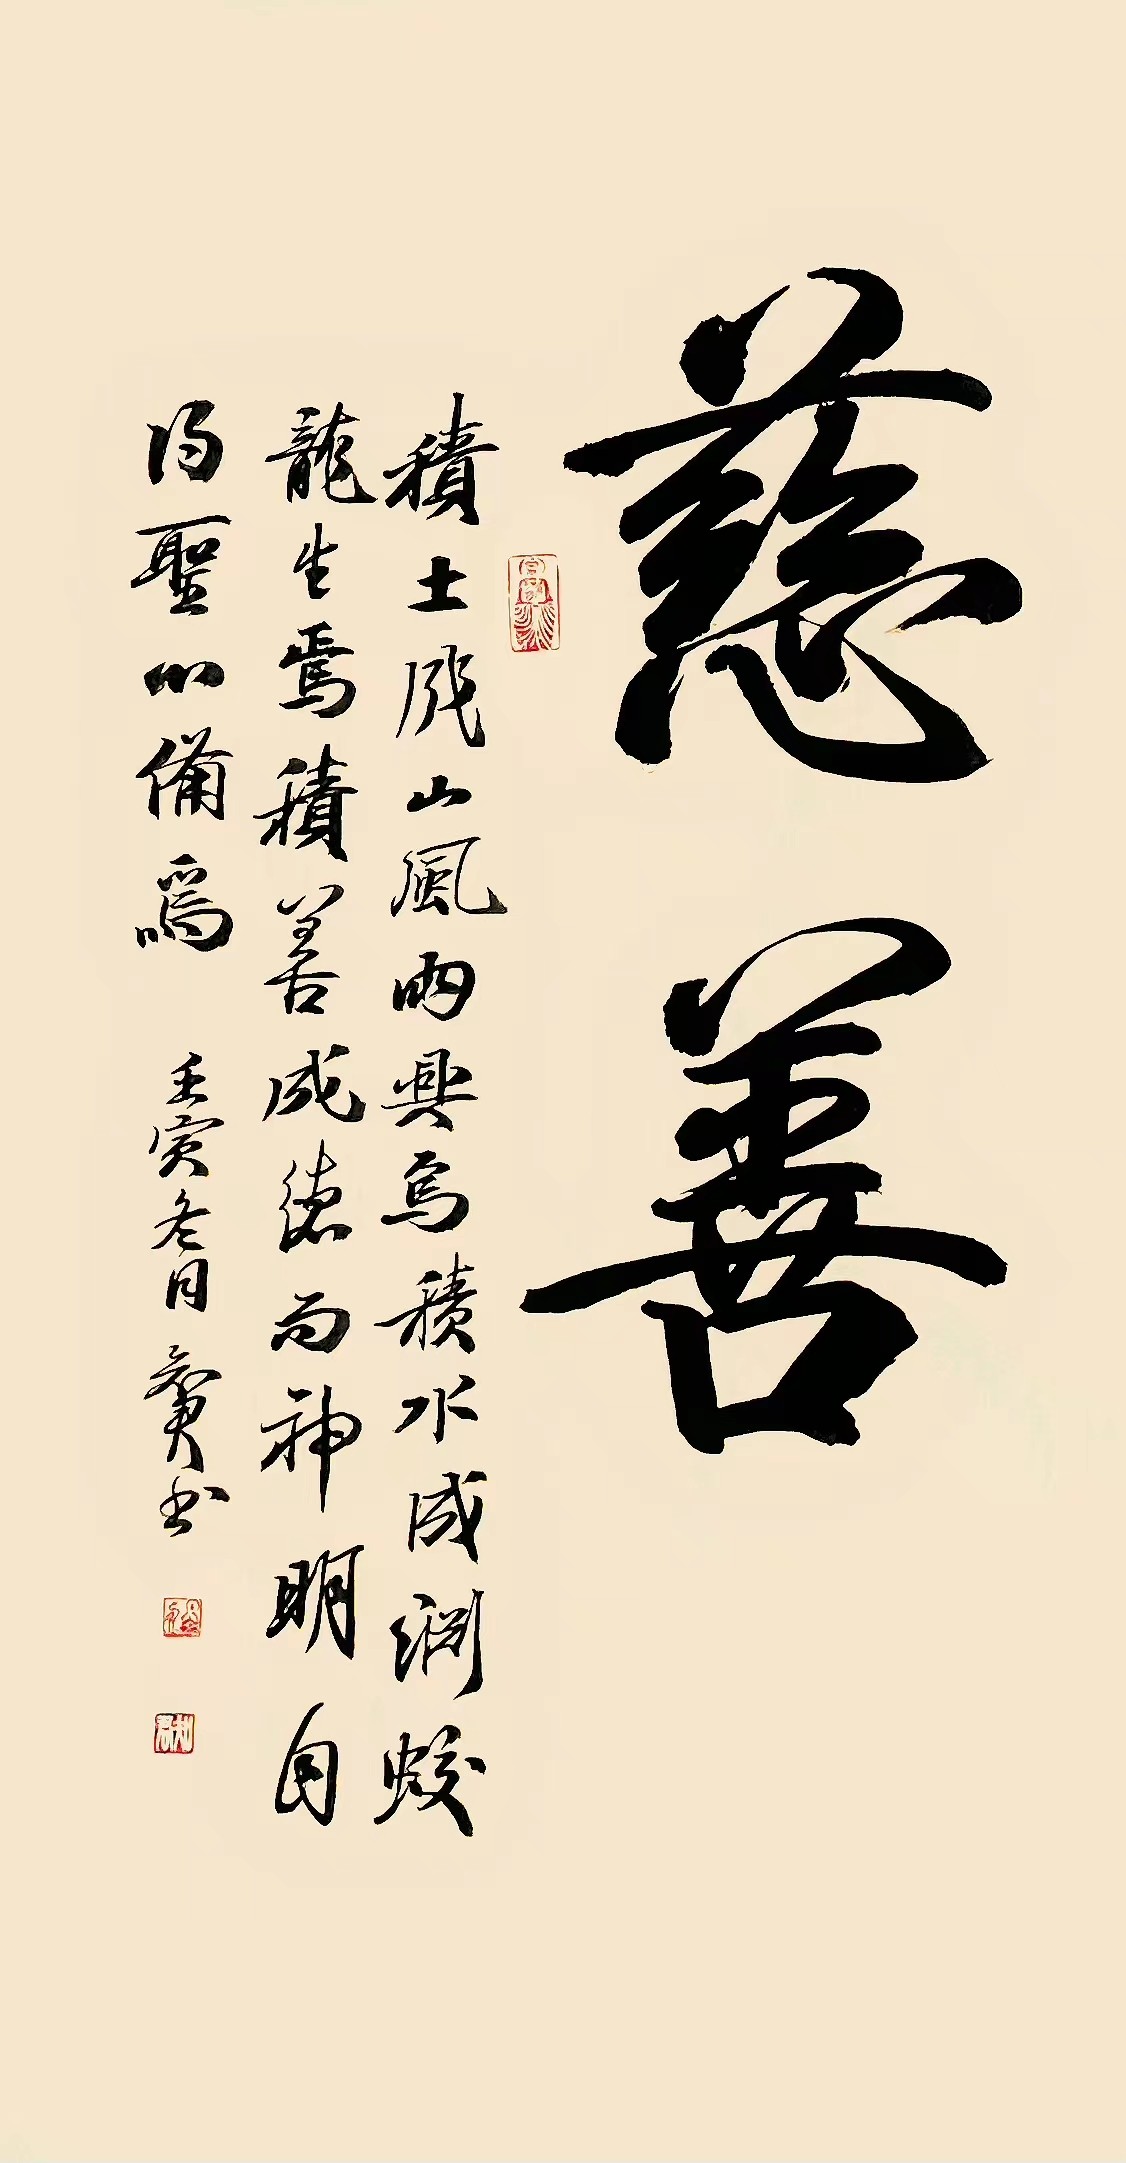 慈善
積土成山風雨興焉積水成淵蛟
龍生焉積善成德而神明自
得聖心備焉 壬寅冬月 書